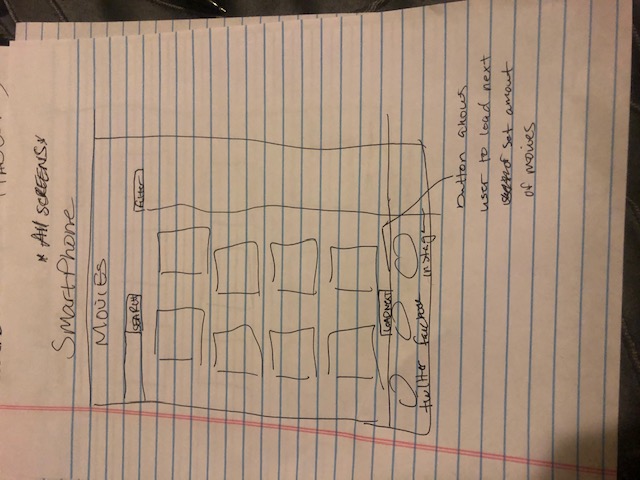 * All SCREENS *
SmartPhone
MOVIES
SEARCH
filter
LOAD NEXT
twitter facebook instag
button allows
user to load next
set amount
of movies